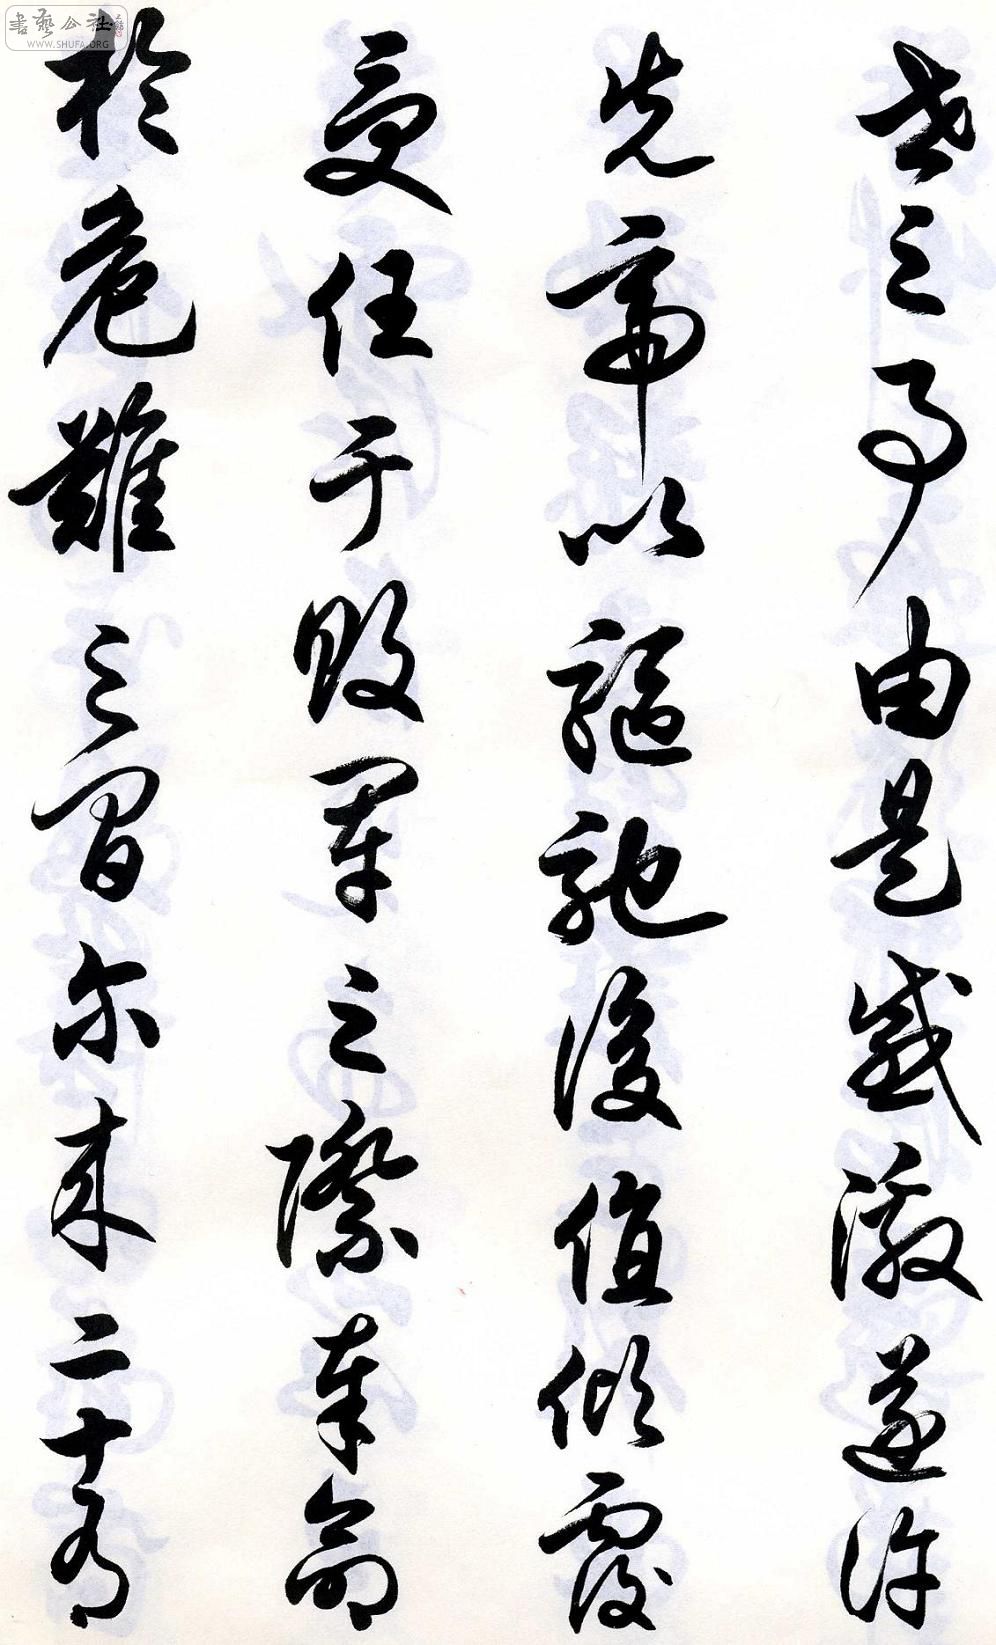 世之事由是感激遂許
先帝以驅馳後值傾覆
受任于敗軍之際奉命
於危難之間尔来二十有
書藝公社
WWW.SHUFA.ORG